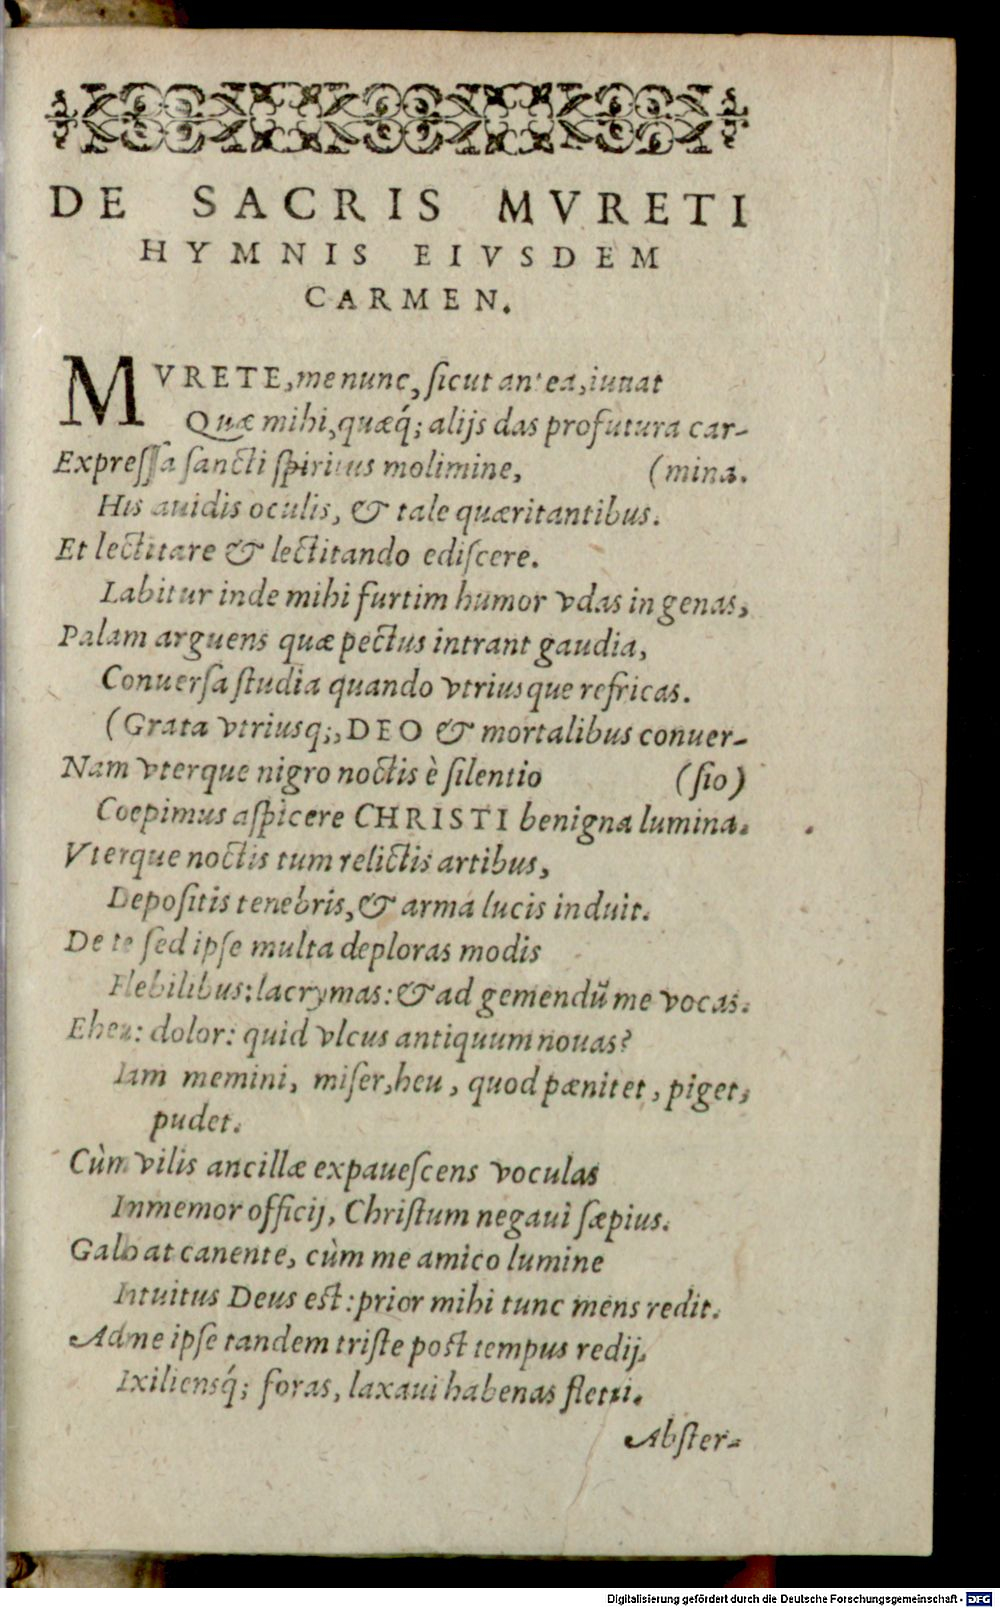 DE SACRIS MVRETI
HYMNIS EIVSDEM
CARMEN.
MVRETE, me nunc, ſicut antea, iuuat
Quæ mihi, quæq́; alijs das profutura car-
Expreſſa ſancti ſpiritus molimine, (mina.
His auidis oculis, & tale quæritantibus.
Et lectitare & lectitando ediſcere.
Labitur inde mihi furtim humor vdas in genas,
Palam arguens quæ pectus intrant gaudia,
Conuerſa ſtudia quando vtriusque refricas.
(Grata vtriusq;, DEO & mortalibus conuer-
Nam vterque nigro noctis è ſilentio (ſio)
Coepimus aſpicere CHRISTI benigna lumina.
Vterque noctis tum relictis artibus,
Depoſitis tenebris, & arma lucis induit.
De te ſed ipſe multa deploras modis
Flebilibus: lacrymas: & ad gemendũ me vocas.
Eheu: dolor: quid vlcus antiquum nouas?
Iam memini, miſer, heu, quod pænitet, piget,
pudet.
Cùm vilis ancillæ expaueſcens voculas
Inmemor officij, Chriſtum negaui ſæpius.
Gallo at canente, cùm me amico lumine
Intuitus Deus est: prior mihi tunc mens redit.
Ad me ipſe tandem triſte post tempus redij,
Exiliensq́; foras, laxaui habenas fletui.
Abſter-
Digitalisierung gefördert durch die Deutsche Forschungsgemeinschaft - DFG